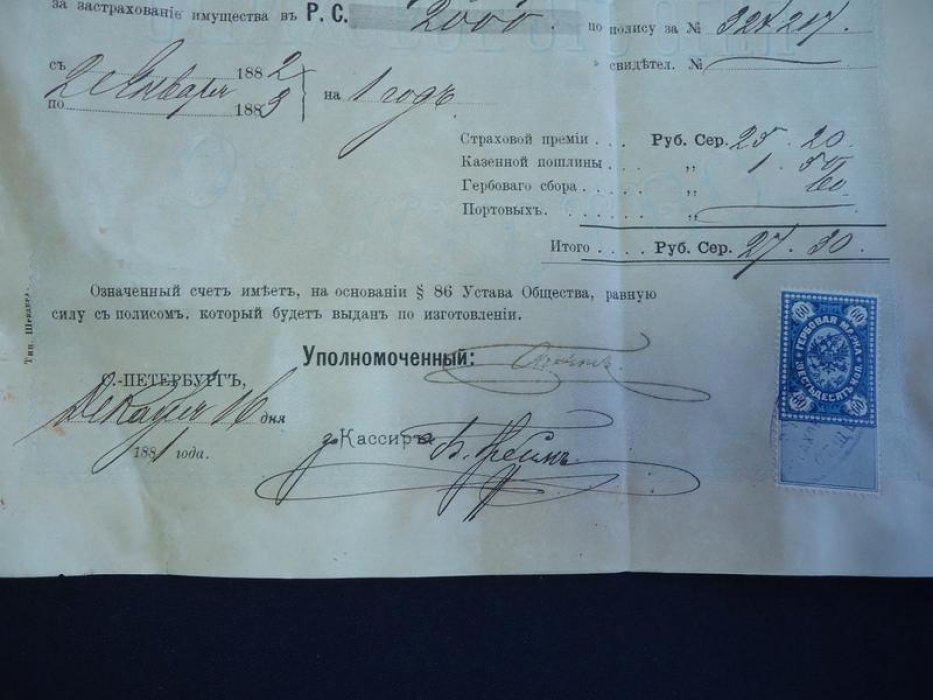 за застрахованіе имущества въ Р. С. 2000. по полису за № 324217.
съ 2 Января 1882 свидѣтел. №
по 1883 на 1 годъ
Страховой преміи . . . Руб. Сер. 25. 20
Казенной пошлины . . . „ 1. 50
Гербоваго сбора . . . . . „ 60
Портовыхъ . . . . . . . „
Итого . . . . Руб. Сер. 27. 30.
Означенный счетъ имѣетъ, на основаніи § 86 Устава Общества, равную
силу съ полисомъ, который будетъ выданъ по изготовленіи.
Уполномоченный:
С.-ПЕТЕРБУРГЪ,
Декабря 16 дня
1881 года.
Кассиръ
Тип.
60 60
ГЕРБОВАЯ МАРКА
ШЕСТЬДЕСЯТЪ КОП.
60 60